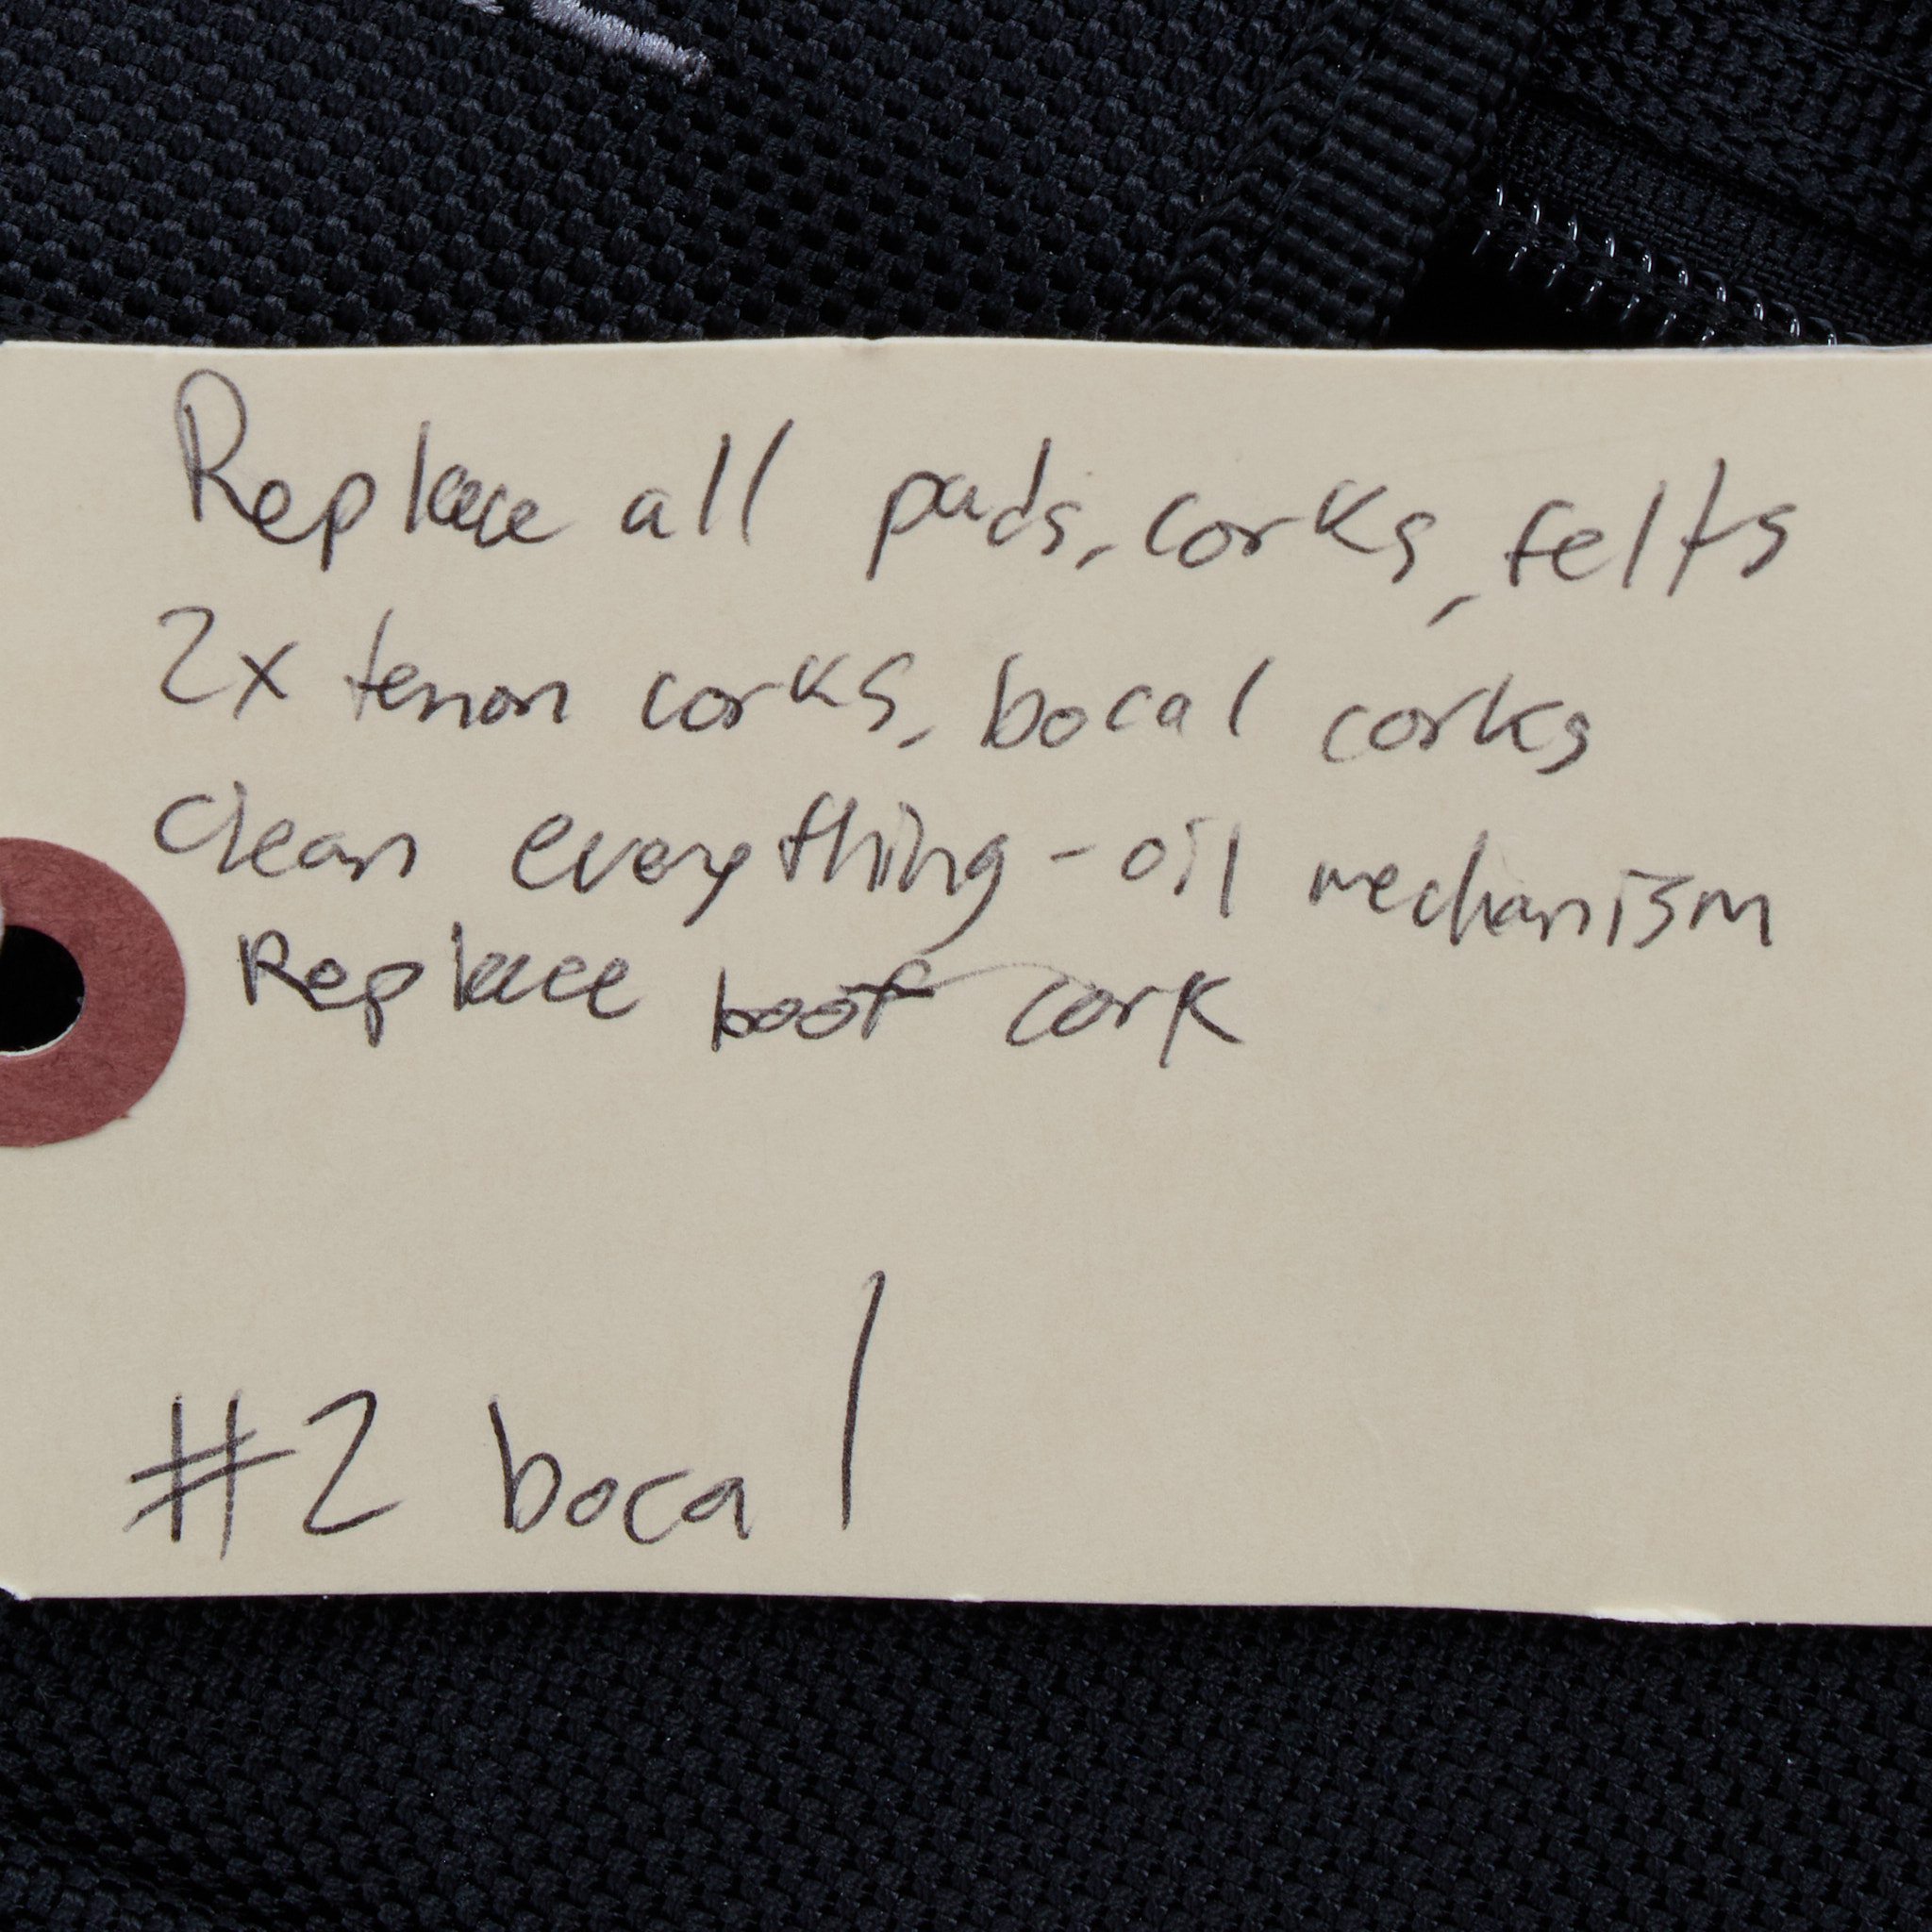 Replace all pads, corks, felts
2x tenon corks, bocal corks
Clean everything - oil mechanism
Replace boot cork
#2 bocal